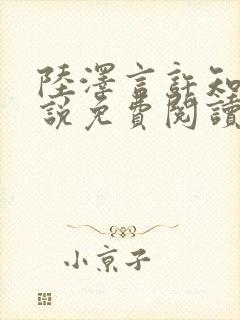 陸澤言許知
說免費閱讀
小京子